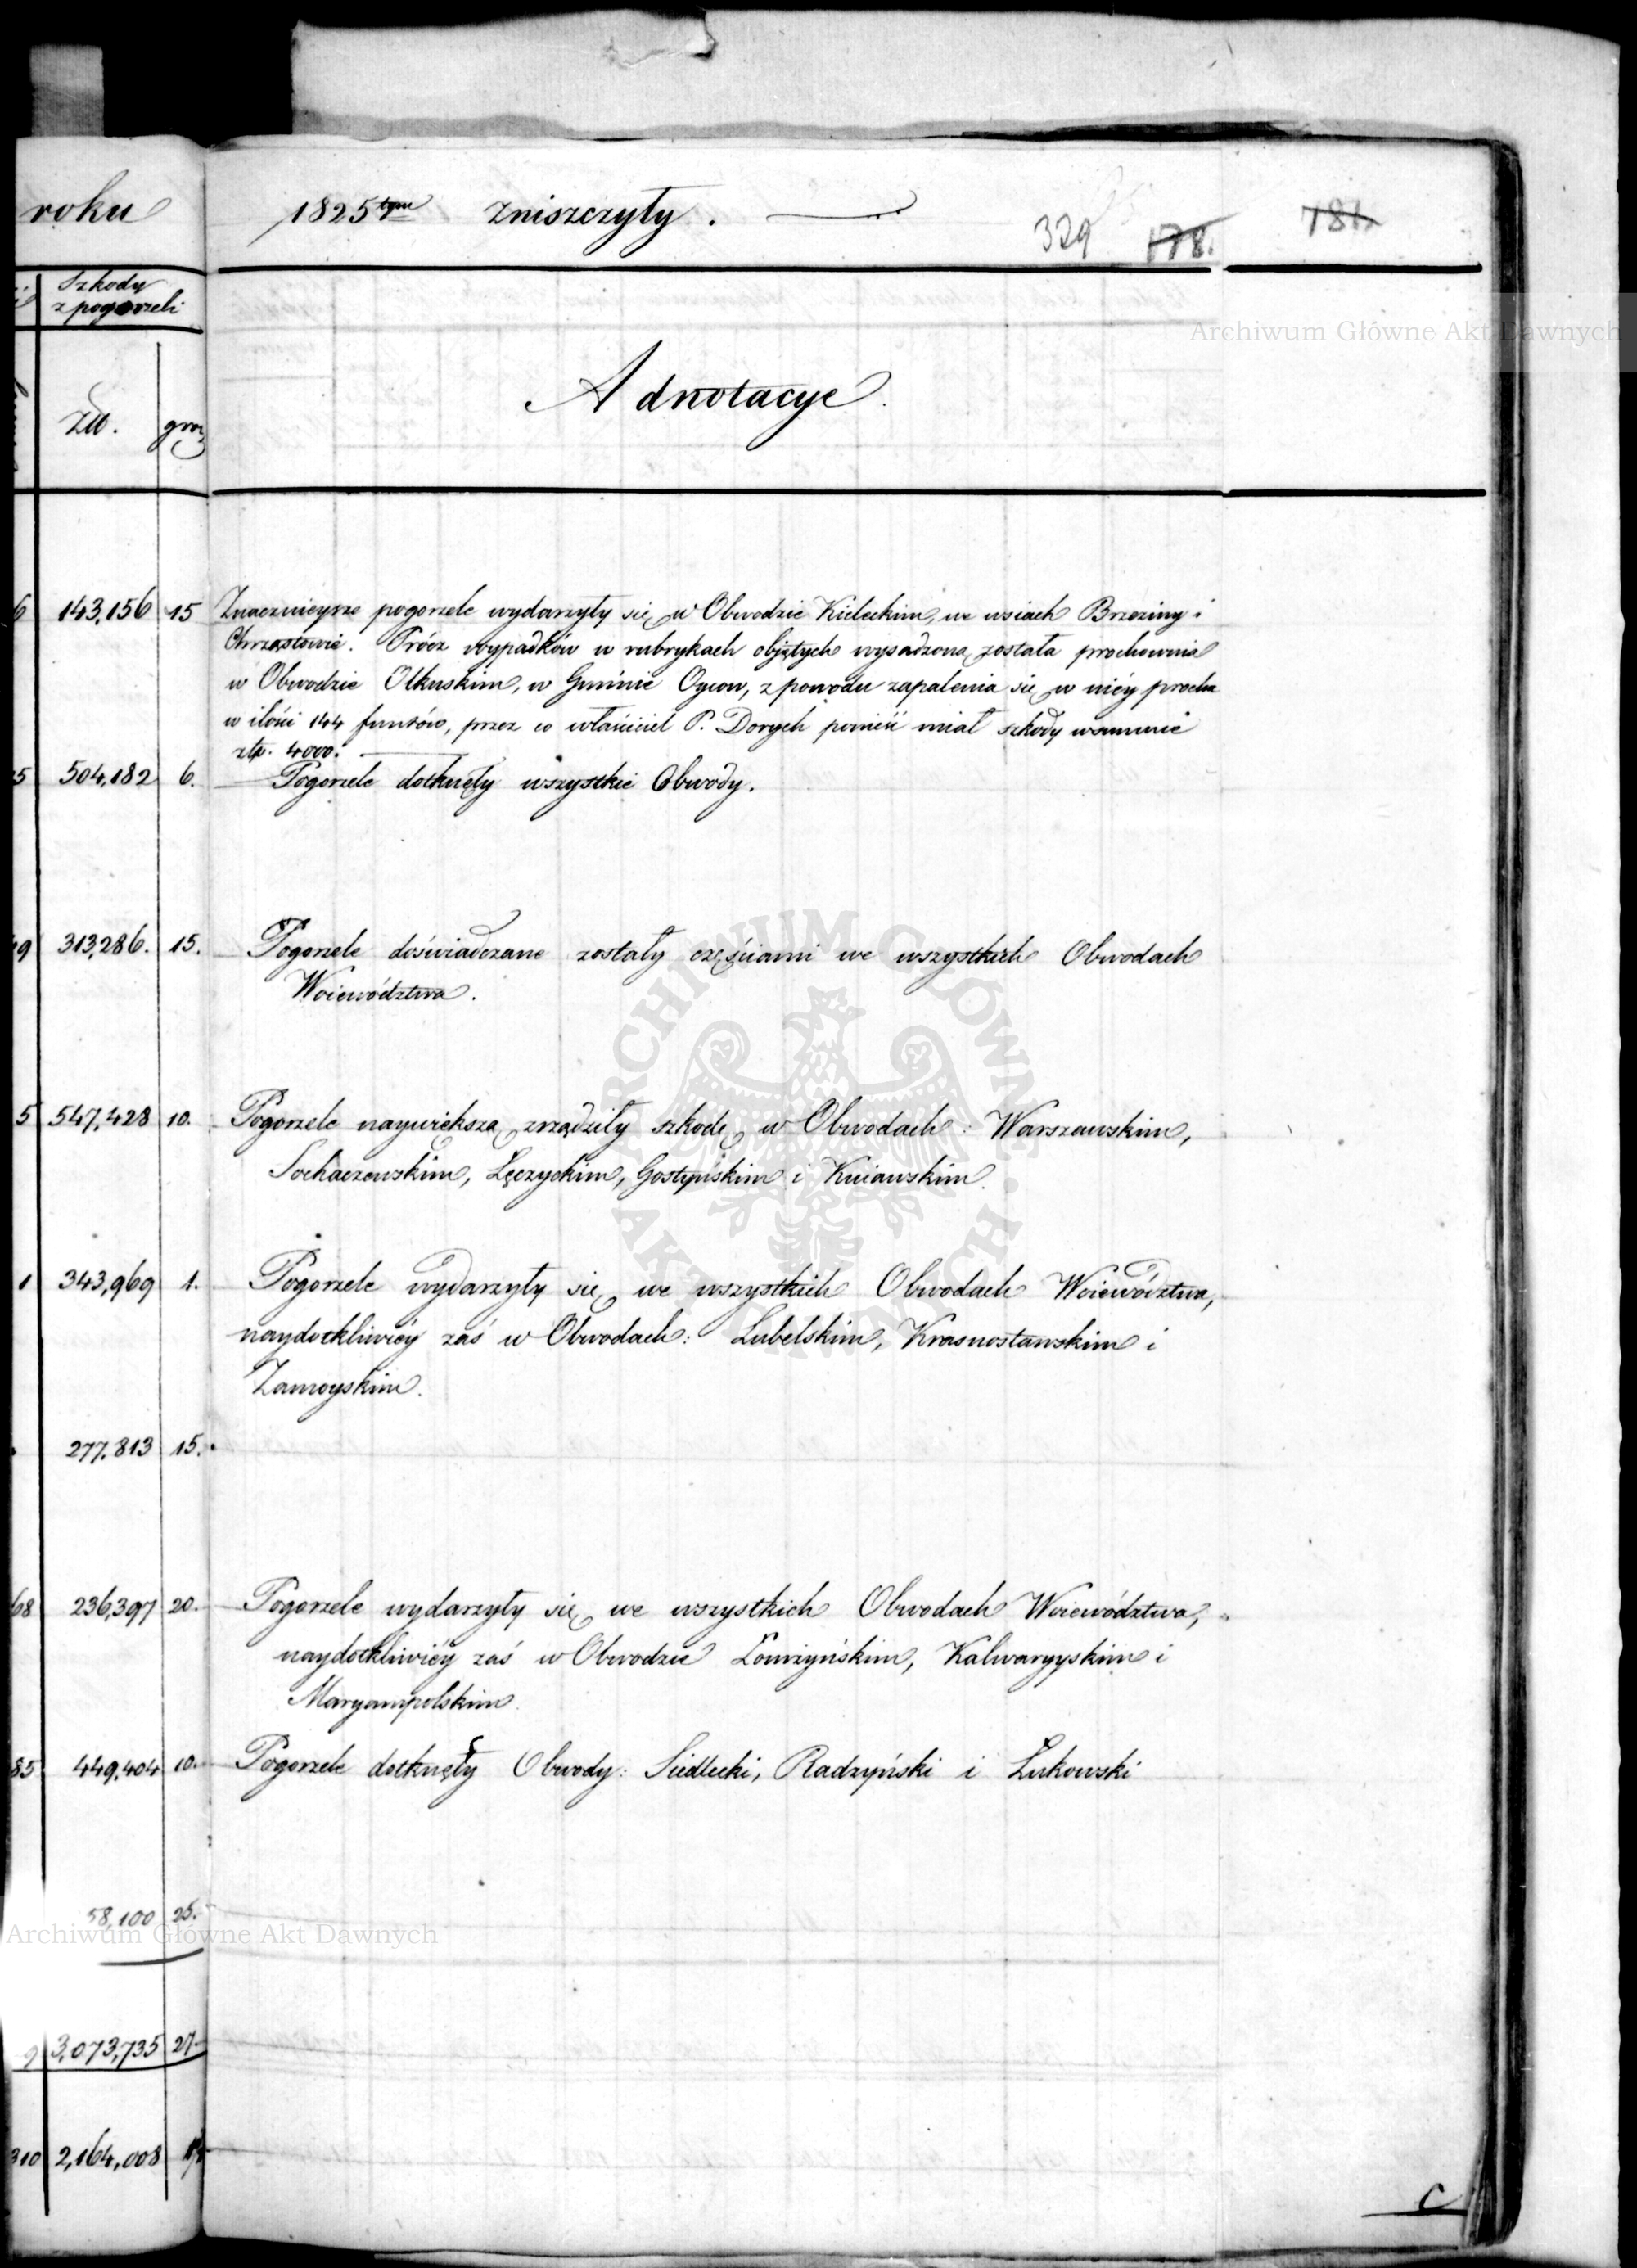 roku 1825tym zniszczyły.
329 178. 781.
Szkody
z pogorzeli
Adnotacye.
Złł. gro.
143,156 15 Znacznieysze pogorzele wydarzyły się w Obwodzie Kieleckim, we wsiach Brzeziny i
Chrząstowie. Prócz wypadków w rubrykach objętych wysadzoną została prochownia
w Obwodzie Olkuskim, w Gminie Oycow, z powodu zapalenia się w niéy prochu
w ilości 144 funtów, przez co właściciel P. Dorych ponieść miał szkody w summie
złp. 4000.
504,182 6. Pogorzele dotknęły wszystkie Obwody.
313,286. 15. Pogorzele doświadczane zostały częściami we wszystkich Obwodach
Woiewództwa.
5 547,428 10. Pogorzele naywiększą zrządziły szkodę w Obwodach: Warszawskim,
Sochaczewskim, Łęczyckim, Gostyńskim i Kuiawskim.
1 343,969 1. Pogorzele wydarzyły się we wszystkich Obwodach Woiewództwa,
naydotkliwiéy zaś w Obwodach: Lubelskim, Krasnostawskim i
Zamoyskim.
277,813 15.
68 236,397 20. Pogorzele wydarzyły się we wszystkich Obwodach Woiewództwa,
naydotkliwiéy zaś w Obwodzie Łomżyńskim, Kalwaryyskim i
Maryampolskim.
85 449,404 10. Pogorzele dotknęły Obwody: Siedlecki, Radzyński i Łukowski
58,100 25.
3,073,735 27.
310 2,164,008
C
Archiwum Główne Akt Dawnych
Archiwum Główne Akt Dawnych
ARCHIWUM GŁÓWNE
AKT DAWNYCH